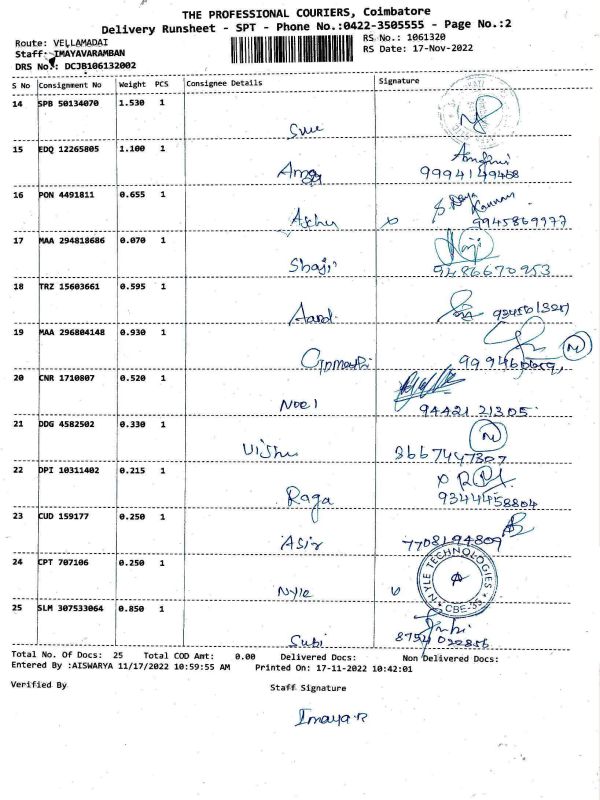 THE PROFESSIONAL COURIERS, Coimbatore
Delivery Runsheet - SPT - Phone No.:0422-3505555 - Page No.:2
Route: VELLAMADAI
RS No.: 1061320
Staff: IMAYAVARAMBAN
RS Date: 17-Nov-2022
DRS No.: DCJB106132002
S No Consignment No Weight PCS Consignee Details Signature
14 SPB 50134070 1.530 1
15 EDQ 12265805 1.100 1
9994149468
16 PON 4491811 0.655 1
9945869977
17 MAA 294818686 0.070 1
Shaji
9486670953
18 TRZ 15603661 0.595 1
19 MAA 296804148 0.930 1
20 CNR 1710807 0.520 1
Noel 94421 21305
21 DDG 4582502 0.330 1
Vishu
22 DPI 10311402 0.215 1
Raga 9344458804
23 CUD 159177 0.250 1
Asir 7708194809
24 CPT 707106 0.250 1
Nyle NYLE TECHNOLOGIES CBE-35
25 SLM 307533064 0.850 1
Subi
Total No. Of Docs: 25 Total COD Amt: 0.00 Delivered Docs: Non Delivered Docs:
Entered By :AISWARYA 11/17/2022 10:59:55 AM Printed On: 17-11-2022 10:42:01
Verified By Staff Signature
Imaya.R